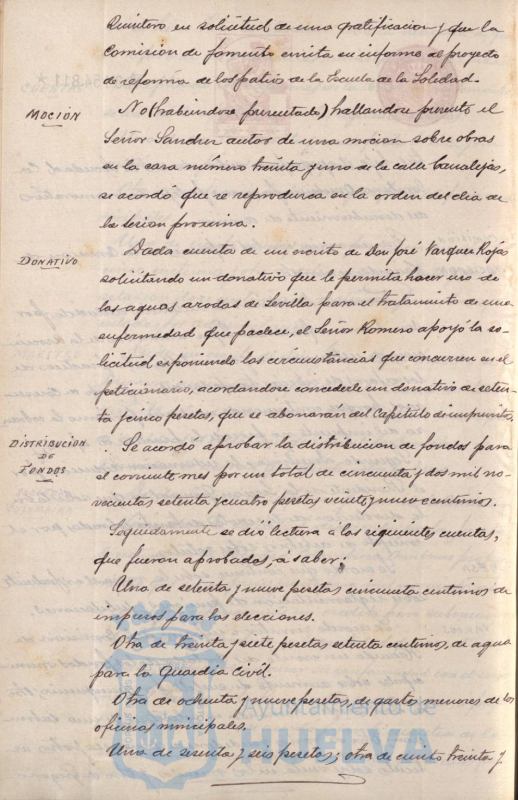 Quintero en solicitud de una gratificacion y que la
Comision de fomento emita su informe al proyecto
de reforma de los patios de la Escuela de la Soledad.
MOCIÓN
No (habiendose presentado) hallandose presente el
Señor Sanchez autor de una mocion sobre obras
en la casa número treinta y uno de la calle Canalejas,
se acordó que se reproduzca en la orden del dia de
la sesion proxima.
DONATIVO
Dada cuenta de un escrito de Don José Vazquez Rojas
solicitando un donativo que le permita hacer uso de
las aguas azoadas de Sevilla para el tratamiento de una
enfermedad que padece, el Señor Romero apoyó la so-
licitud exponiendo las circunstancias que concurren en el
peticionario, acordandose concederle un donativo de seten-
ta y cinco pesetas, que se abonarán del Capitulo de imprevistos.
DISTRIBUCION
DE
FONDOS
Se acordó aprobar la distribucion de fondos para
el corriente mes por un total de cincuenta y dos mil no-
vecientas setenta y cuatro pesetas veinte y nueve centimos.
Seguidamente se dió lectura á las siguientes cuentas,
que fueron aprobadas, á saber:
Una de setenta y nueve pesetas cincuenta centimos de
impresos para las elecciones.
Otra de treinta y siete pesetas setenta centimos, de agua
para la Guardia Civil.
Otra de ochenta y nueve pesetas, de gastos menores de las
oficinas municipales.
Una de sesenta y seis pesetas; otra de ciento treinta y
Ayuntamiento de
HUELVA